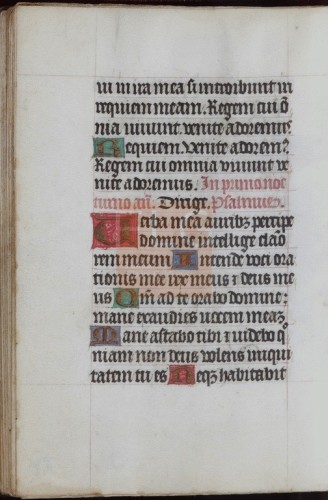 ui in ira mea si introibunt in
requiem meam. Regem cui õ
nia uiuunt. uenite adoremus
Requiem Venite adorem9
Regem cui omnia viuunt ve
nite adoremus. In primo noc
turno añ. Dirige, Psalmus.
Verba mea auribꝫ percipe
domine intellige clamo
rem meum Intende voci ora
tionis mee rex meus ⁊ deus me
us Qm̃ ad te orabo domine:
mane exaudies vocem meaꝫ
Mane astabo tibi ⁊ videbo qͦ
niam non deus volens iniqui
tatem tu es Neqꝫ habitabit